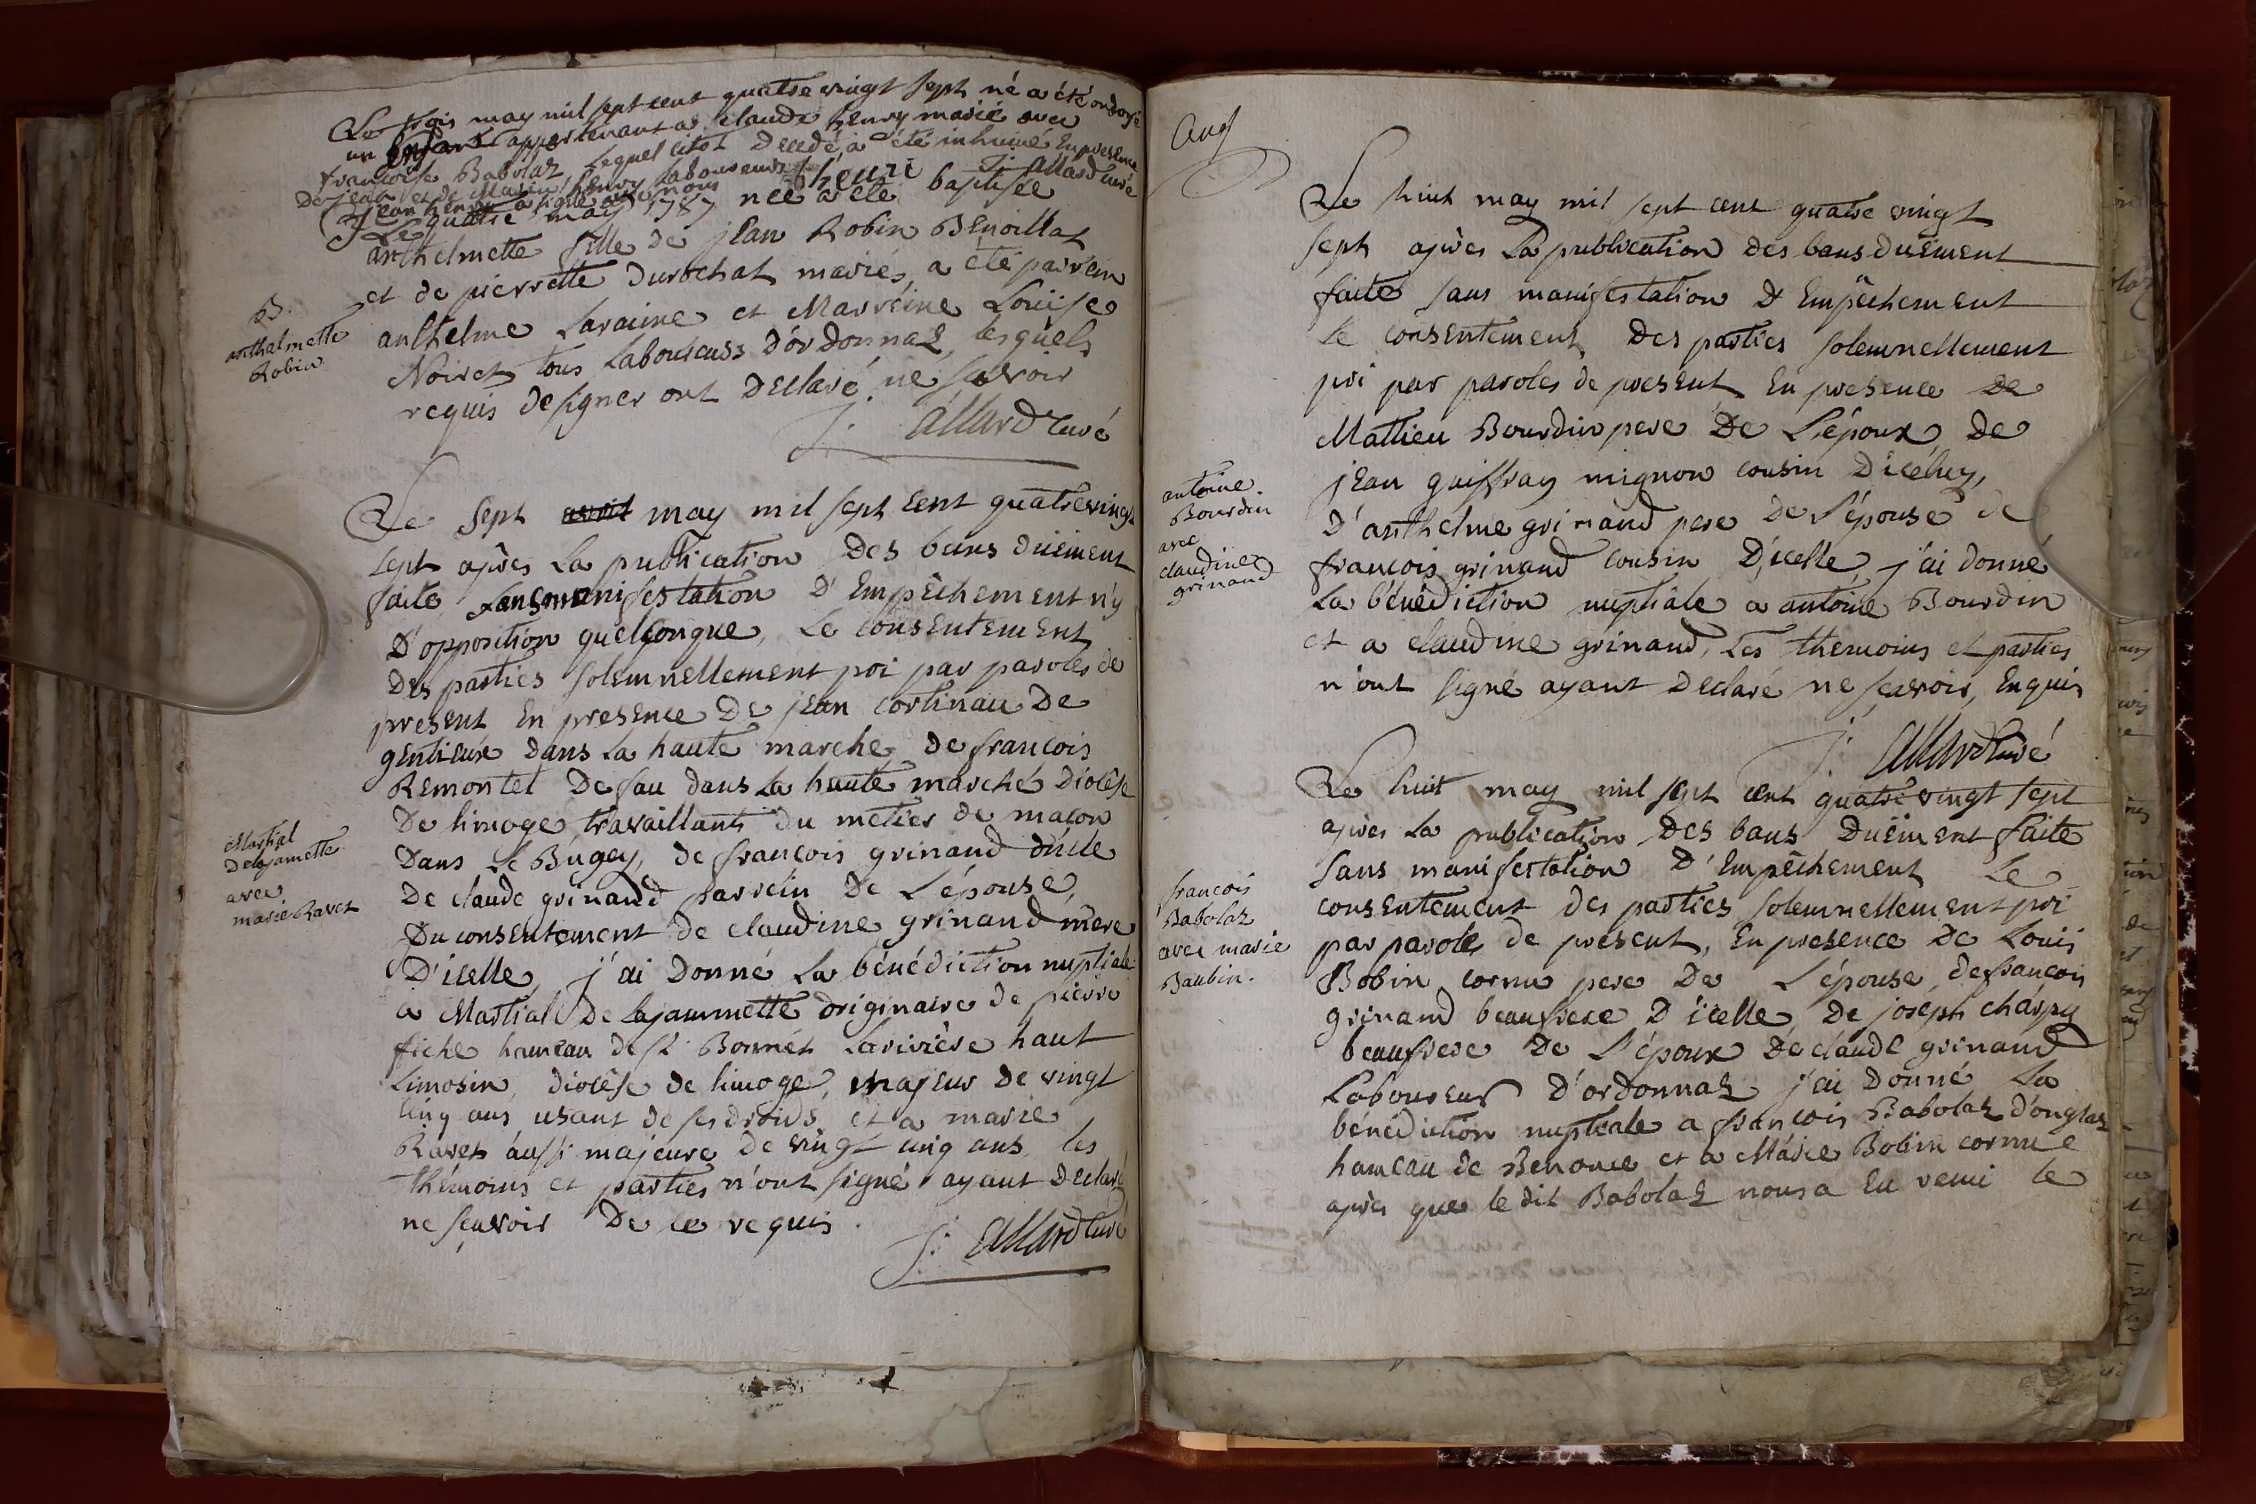 Le trois may mil sept cent quatre vingt sept né a été ondoyé
un enfant appartenant a claude henry marié avec
francoise Babolaz, lequel citot Decedé, a été inhumé En presence
De jean et de Marin henry Laboureurs
jean henry a signé avec nous henri J. Allard curé
Le quatre may 1787 née a été baptisée
anthelmette fille de jean Robin Benoillat
et de pierrette Durochat mariés, a été parrein
anthelme Laraine et Marreine Louise
Noiret tous Laboureurs D'ordonnaz, lesquels
requis designer ont Declaré ne scavoir
J. Allard Curé
B.
anthalmette
Robin
Le sept avril may mil sept cent quatrevingt
sept après La publication Des bans duëment
faite sans manifestation D'Empêchement n'y
D'opposition quelconque, Le consentement
Des parties solemnellement pri par paroles de
present En presence De jean Cortinau De
gentieure dans La haute marche, De francois
Remontet De sau dans La haute marche Diocèse
De limoge, travaillants du metier de macon
Dans Le Bugey, de francois grinand oncle
De claude grinand parrein De L'épouse,
Du consentement de claudine grinand mere
D'icelle, j'ai Donné La bénédiction nuptiale
à Martial De lajammette originaire de pierre
fiche hameau de st Bonnet Lariviere haut
Limosin, diocèse de limoge, majeur de vingt
cinq ans, usant de ses droids, et a marie
Ravet aussi majeure de vingt cinq ans, les
thémoins et parties n'ont signé ayant Declaré
ne scavoir De ce requis.
J. Allard Curé
Martial
Delajamette
avec
marie Ravet
Aug
Le huit may mil sept cent quatre vingt
sept après La publication des bans duëment
faite sans manifestation D'Empêchement
le consentement Des parties solemnellement
pri par paroles de present, En presence De
Mattieu Bourdin pere De L'époux, De
jean guiffray mignon cousin D'icéluy,
D'anthelme grinand pere De L'épouse de
francois grinand cousin D'icelle, j'ai donné
La bénédiction nuptiale a antoine Bourdin
et a claudine grinand, Les themoins et parties
n'ont signé ayant Declaré ne scavoir, Enquis
J. Allard Curé
antoine
Bourdin
avec
claudine
grinand
Le huit may mil sept cent quatre vingt sept
après La publication Des bans Duëment faite
sans manifestation D'Empêchement Le
consentement des parties solemnellement pri
par parole de present, En presence De Louis
Bobin cornu pere De L'épouse, de francois
grinand beaufrere D'icelle, De joseph charpy
beaufrere De L'époux De claude grinand
Laboureur D'ordonnaz j'ai Donné La
bénédiction nuptiale a francois Babolaz d'onglas
hameau de Benonce et a Marie Bobin cornue
après que le dit Babolaz nous a Eu remi le
francois
Babolaz
avec marie
Baubin.